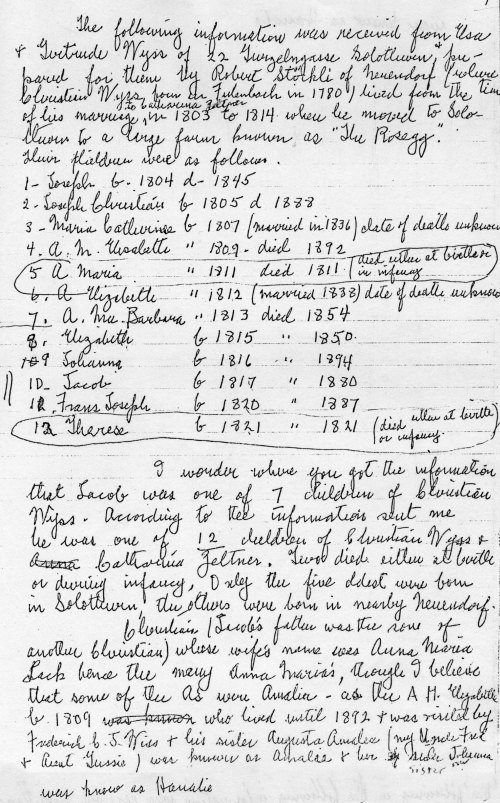 The following information was received from Elsa
& Gertrude Wyss of 22 Gurzelngasse Solothurn, pre-
pared for them by Robert Stöckli of Neuendorf (where
Christian Wyss, born in Fulenbach in 1780) lived from the time
to Catharina Zeltner
of his marriage, in 1803 to 1814 where he moved to Solo-
thurn to a large farm known as "The Rosegg".
Their children were as follows.
1- Joseph b. 1804 d- 1845
2- Joseph Christian b 1805 d 1888
3- Maria Catherine b 1807 (married in 1836) date of death unknown
4. A. M. Elisabette " 1809- died 1892
5 A Maria " 1811 died 1811 (died either at birth or
in infancy
6. A Elizabette " 1812 (married 1838) date of death unknown
7. A. Ma. Barbara " 1813 died 1854
8. Elizabeth b 1815 " 1850.
9 Johanna b 1816 " 1894
10- Jacob b 1817 " 1880
11. Franz Joseph b 1820 " 1887
12 Tharese b 1821 " 1821 (died either at birth
or infancy.
I wonder where you got the information
that Jacob was one of 7 children of Christian
Wyss. According to the information sent me
he was one of 12 children of Christian Wyss &
Anna Catharina Zeltner. Two died either at birth
or during infancy, Only the five oldest were born
in Solothurn, the others were born in nearby Neuendorf.
Christian (Jacob's father was the son of
another Christian) whose wife's name was Anna Maria
Lack hence the many Anna Maria's, though I believe
that some of the As were Amalia - as the A M. Elizabette
b 1809 was known who lived until 1892 & was visited by
Frederick C. J. Wiss & his sister Augusta Amalea (my Uncle Fred
& Aunt Gussie) was known as Amalae & her sister Johanna
sister
was know as Hanalie